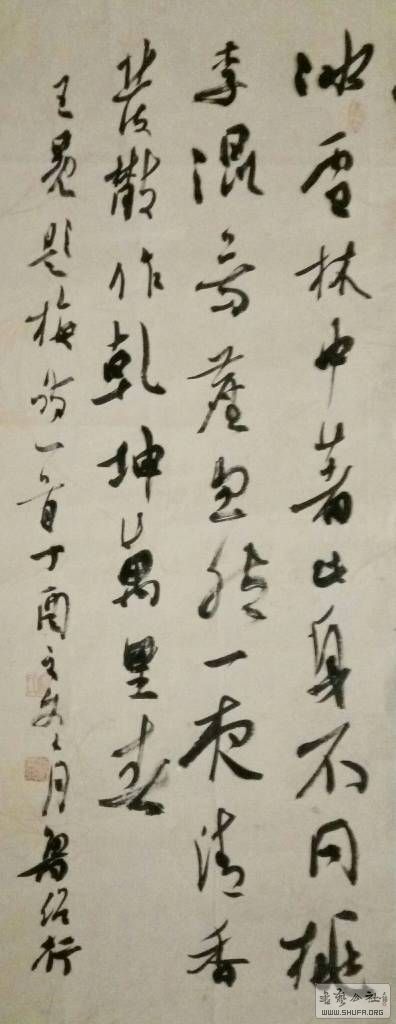 冰雪林中著此身不同桃
李混芳塵忽然一夜清香
發散作乾坤萬里春
王冕題梅詩一首丁酉之月
书艺公社
WWW.SHUFA.ORG